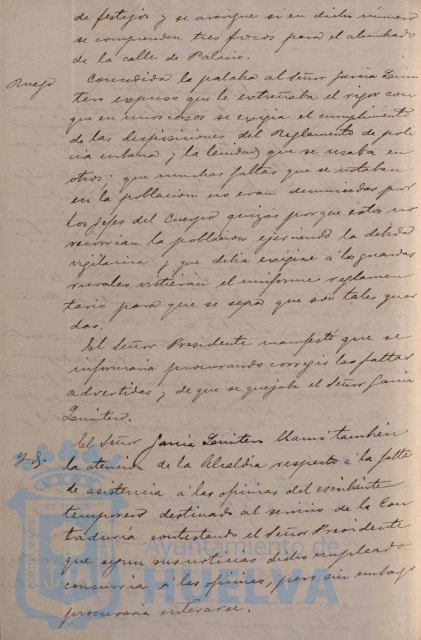 de festejos y se averigue si en dicho número
se comprenden tres focos para el alumbrado
de la calle de Palacio.
Ruego
Concedida la palabra al Señor Garcia
tero expuso que le extrañaba el rigor con
que en unos casos se exigia el cumplimiento
de las disposiciones del Reglamento de poli
cia urbana y la lenidad que se usaba en
otros: que muchas faltas que se notaban
en la poblacion no eran denunciadas por
los jefes del Cuerpo quizás porque estos no
recorrian la poblacion ejerciendo la debida
vigilancia y que debia exigirse á los guardas
rurales vistieran el uniforme reglamen
tario para que se sepa que son tales guar
das.
El Señor Presidente manifestó que se
informaria procurando corregir las faltas
advertidas y de que se quejaba el Señor Garcia
Yd.
El Señor Garcia llamó tambien
la atencion de la Alcaldia respecto á la falta
de asistencia á las oficinas del escribiente
temporero destinado al servicio de la Con
taduria contestando el Señor Presidente
que segun sus noticias dicho empleado
concurria á las oficinas, pero sin embargo
procuraria enterarse.
Ayuntamiento de
HUELVA